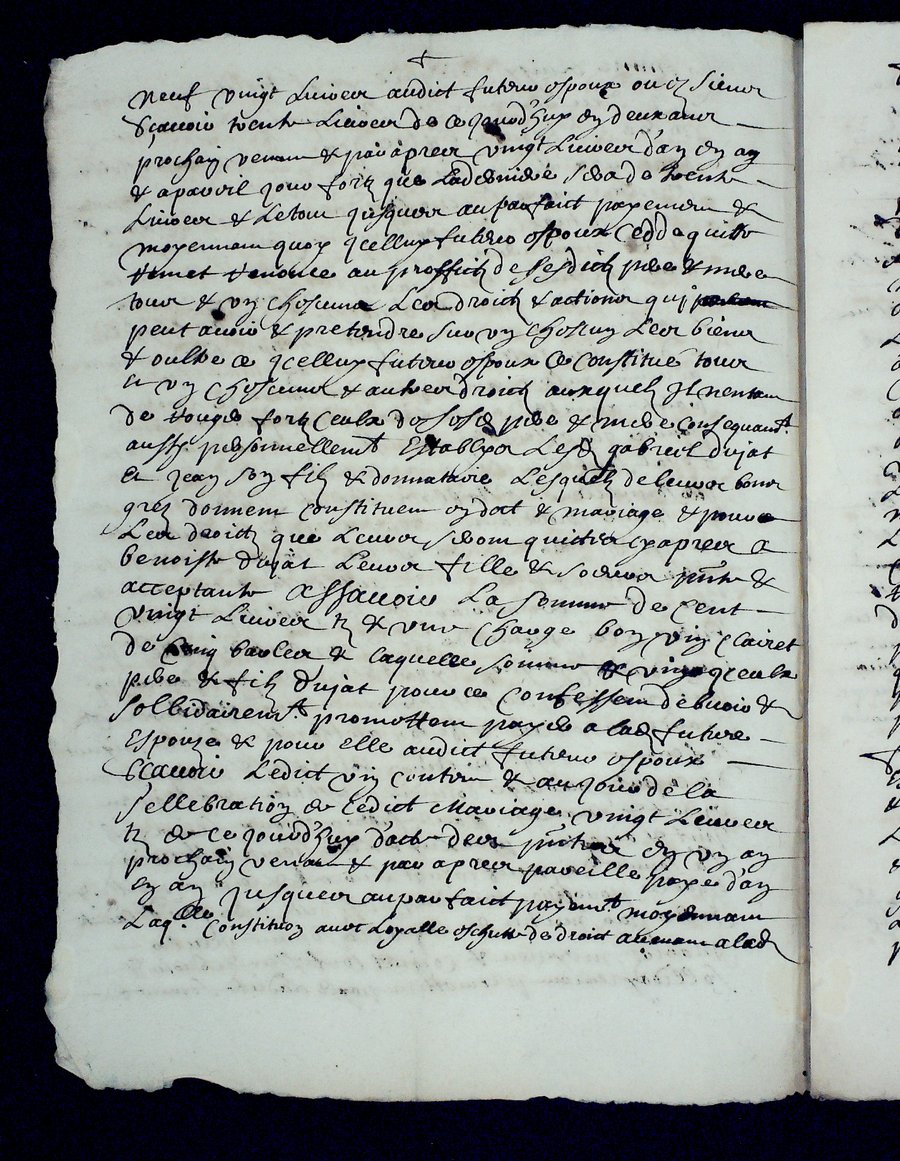 neuf vingt livres audict futeur espoux ou es siens
scavoir trente livres de ce jourd'huy en deux ans
prochain venant & par apres vingt livres d'an en an
& a pareil jour fors que la derniere sera de trente
livres & le tout jusques au parfaict payement &
moyennant quoy icelluy futeur espoux cedde quitte
remet renonce au proffict de sesdicts pere & mere
tous & un chascuns leurs droicts & actions qu'il
peut avoir & pretendre sur un chascun leurs biens
& oultre ce icelluy futeur espoux ce constitue tous
et un chascuns & autres droicts auxquels il n'entant
de touger fors ceulx de sesd pere & mere consequant
aussy personnellemt establys lesd gabriel dujat
et jean son fils & donnataire lesquels de leurs bons
grez donnent constituent en dot & mariage & pour
les droicts que leurs seront quictes cy apres a
benoiste dujat leur fille & soeur pnte &
acceptante assavoir la somme de cent
vingt livres tz & une charge bon vin clairet
de cinq barles & laquelle somme & vin iceulx
pere & fils dujat pour ce confessent debvoir &
sollidairemt promettent payer a lad future
espouse & pour elle audict futeur espoux
scavoir ledict vin content & au jour de la
sellebration de cedict mariage vingt livres
tz de ce jourd'huy dacte des pntes en un an
prochain venant & par apres pareille paye d'an
en an jusques au parfaict payemt moyennant
laqlle constituon avec loyalle escheute de droict avenant a lad